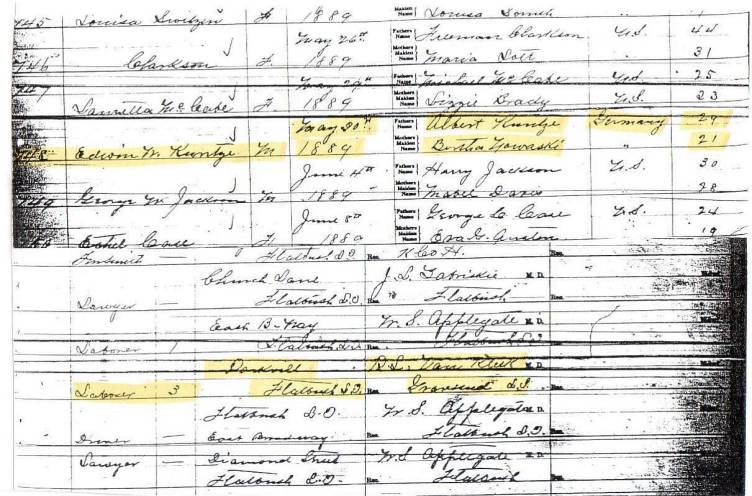 745 Louisa Switzer F 1889 Maiden Name Louisa Smith " 1
May 26th Fathers Name Freeman Clarkson U.S. 44
746 Clarkson F. 1889 Mothers Maiden Name Maria Lott 31
May 29th Fathers Name Michael McCabe U.S. 25
747 McCabe F. 1889 Mothers Maiden Name Lizzie Brady U.S. 23
May 30th Fathers Name Albert Kuntze Germany 29
748 Edwin W. Kuntze M 1889 Mothers Maiden Name Bertha " 21
June 4th Fathers Name Harry Jackson U.S. 30
749 George W. Jackson M 1889 Mothers Maiden Name Mabel Davis " 28
June 8th Fathers Name George L. Case U.S. 24
Ethel Case F. 1889 Mothers Maiden Name Eva G. 19
— Flatbush L.I. Res.
Church Lane J. L. Zabriskie M.D.
Lawyer — Flatbush L.I. Res. Flatbush Res.
East B-way W. S. Applegate M.D.
Laborer 1 Flatbush L.I. Res. Flatbush L.I. Res.
R. L. Van Kleek
Laborer 3 Flatbush L.I. Gravesend L.I. Res.
Flatbush L.I. W. S. Applegate M.D.
Driver — East Broadway Res. Flatbush L.I. Res.
Diamond Street W. S. Applegate M.D.
Lawyer — Flatbush L.I. Res. Flatbush Res.